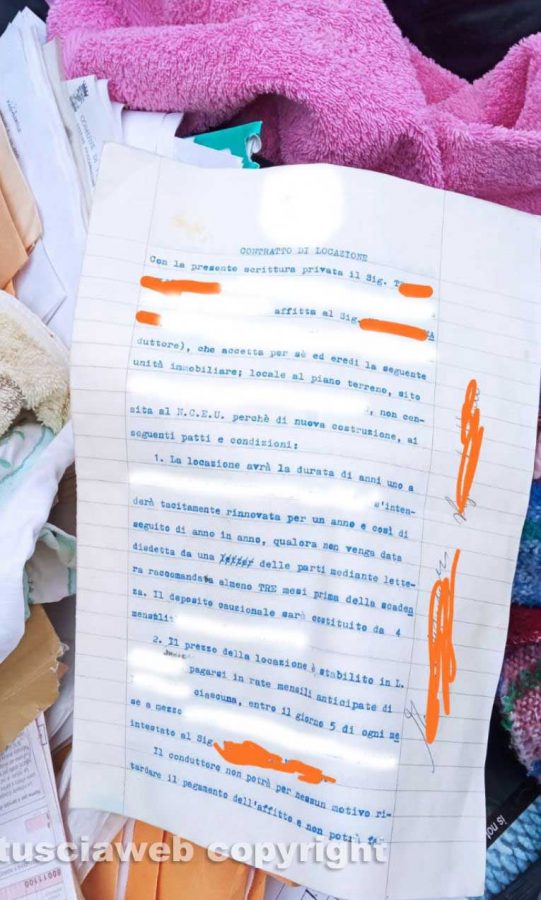 CONTRATTO DI LOCAZIONE
Con la presente scrittura privata il Sig. T
affitta al Sig.
duttore), che accetta per sè ed eredi la seguente
unità immobiliare; locale al piano terreno, sito
, non cen-
sita al N.C.E.U. perchè di nuova costruzione, ai
seguenti patti e condizioni:
1. La locazione avrà la durata di anni uno a
s'inten-
derà tacitamente rinnovata per un anno e così di
seguito di anno in anno, qualora non venga data
disdetta da una delle parti mediante lette-
ra raccomandata almeno TRE mesi prima della scaden
za. Il deposito cauzionale sarà costituito da 4
mensili
2. Il prezzo della locazione è stabilito in L.
pagarsi in rate mensili anticipate di
ciascuna, entro il giorno 5 di ogni me
se a mezzo
intestato al Sig.
Il conduttore non potrà per nessun motivo ri-
tardare il pagamento dell'affitto e non potrà fa
tusciaweb copyright
80011100
is no